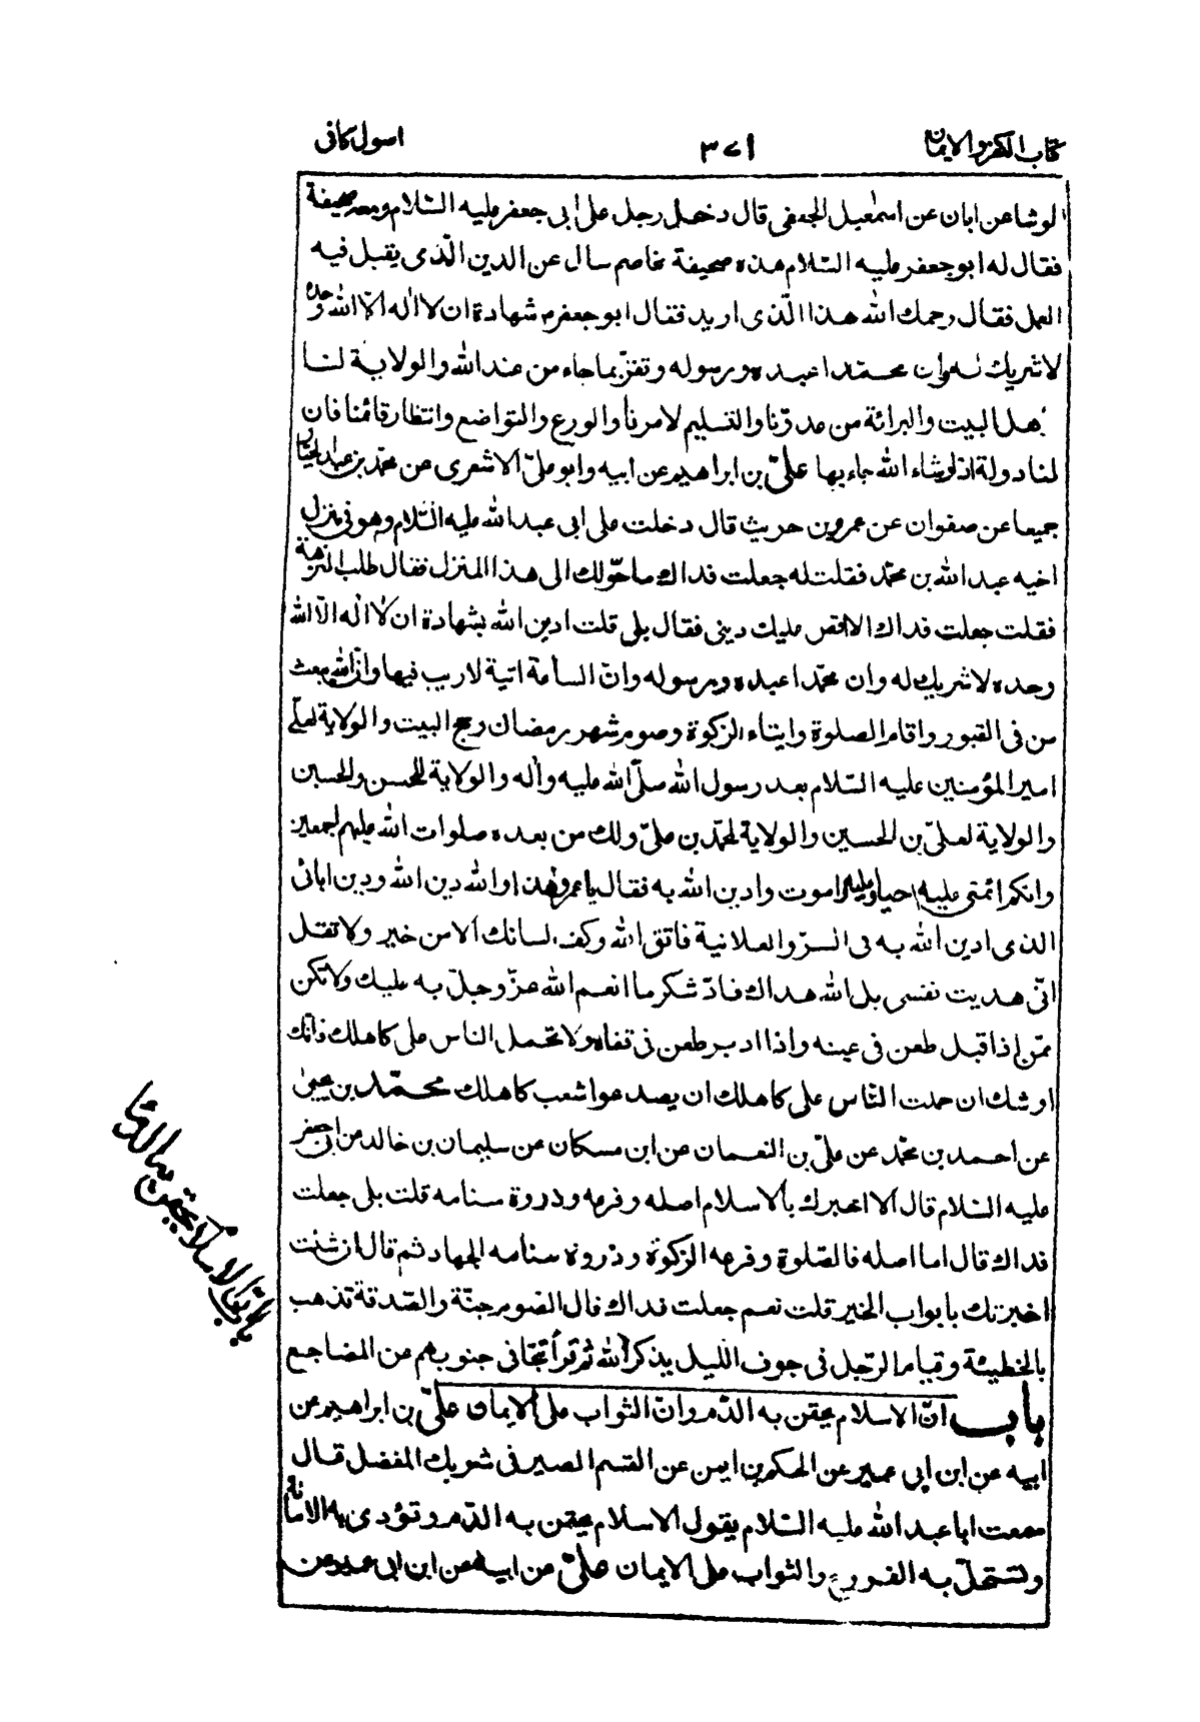 كتاب الكفر والايمان
٣٧١
اسول كافى
الوشا عن ابان عن اسمٰعيل الجعفى قال دخل رجل على ابى جعفر عليه السّلام ومعه صحيفة
فقال له ابو جعفر عليه السّلام هذه صحيفة مخاصم سال عن الدين الّذى يقبل فيه
العمل فقال رحمك الله هذا الّذى اريد فقال ابو جعفر م شهادة ان لا اله الّا الله وحده
لا شريك له وان محمّدا عبده ورسوله وتقرّ بما جاء من عند الله والولاية لنا
اهل البيت والبرائة من عدوّنا والتسليم لامرنا والورع والتواضع وانتظار قائمنا فان
لنا دولة اذا شاء الله جاء بها علىّ بن ابراهيم عن ابيه وابو علىّ الاشعرى عن محمّد بن عبد الجبّار
جميعا عن صفوان عن عمرو بن حريث قال دخلت على ابى عبد الله عليه السّلام وهو فى منزل
اخيه عبد الله بن محمّد فقلت له جعلت فداك ما حوّلك الى هذا المنزل فقال طلب النزهة
فقلت جعلت فداك الا اقص عليك دينى فقال بلى قلت ادين الله بشهادة ان لا اله الّا الله
وحده لا شريك له وان محمّدا عبده ورسوله وانّ الساعة اتية لا ريب فيها وانّ الله يبعث
من فى القبور واقام الصلوة وايتاء الزكوة وصوم شهر رمضان وحج البيت والولاية لعلىّ
امير المؤمنين عليه السّلام بعد رسول الله صلّى الله عليه واله والولاية للحسن والحسين
والولاية لعلىّ بن الحسين والولاية لمحمّد بن علىّ ولك من بعده صلوات الله عليهم اجمعين
وانكم ائمتى عليه احيا وعليه اموت وادين الله به فقال يا عمرو هذا والله دين الله ودين ابائى
الذى ادين الله به فى السرّ والعلانية فاتق الله وكف لسانك الا من خير ولا تقل
انّى هديت نفسى بل الله هداك فادّ شكر ما انعم الله عزّ وجلّ به عليك ولا تكن
ممّن اذا اقبل طعن فى عينه واذا ادبر طعن فى قفاه ولا تحمل الناس على كاهلك فانّك
اوشك ان حملت النّاس على كاهلك ان يصدعوا شعب كاهلك محمّد بن يحيى
عن احمد بن محمّد عن علىّ بن النعمان عن ابن مسكان عن سليمان بن خالد عن ابى جعفر
عليه السّلام قال الا اخبرك بالاسلام اصله وفرعه وذروة سنامه قلت بلى جعلت
فداك قال اما اصله فالصّلوة وفرعه الزكوة وذروة سنامه الجهاد ثم قال ان شئت
اخبرتك بابواب الخير قلت نعم جعلت فداك قال الصّوم جنّة والصّدقة تذهب
بالخطيئة وقيام الرّجل فى جوف اللّيل يذكر الله ثم قرأ تتجافى جنوبهم عن المضاجع
باب انّ الاسلام يحقن به الدّم وانّ الثواب على الايمان علىّ بن ابراهيم عن
ابيه عن ابن ابى عمير عن الحكم بن ايمن عن القسم الصيرفى شريك المفضل قال
سمعت ابا عبد الله عليه السّلام يقول الاسلام يحقن به الدّم وتؤدى به الامانة
وتستحلّ به الفروج والثواب على الايمان علىّ عن ابيه عن ابن ابى عمير عن
باب انّ الاسلام يحقن به الدم